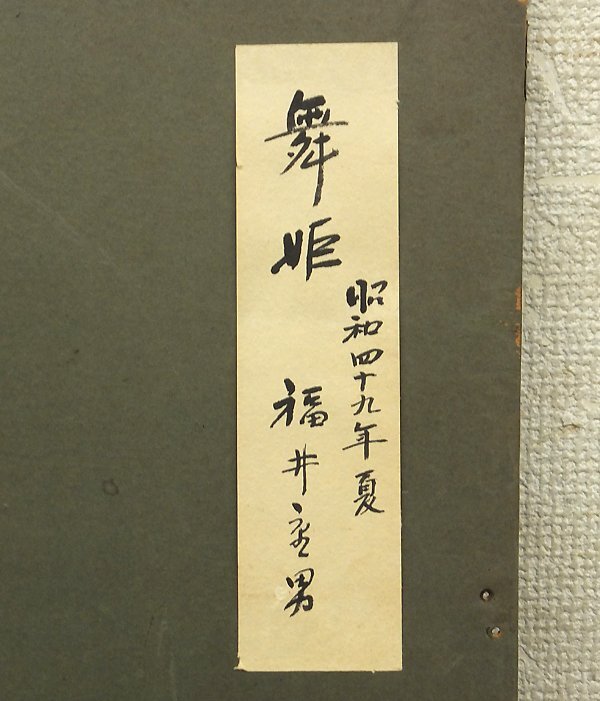 舞姫
昭和四十九年夏
福井男